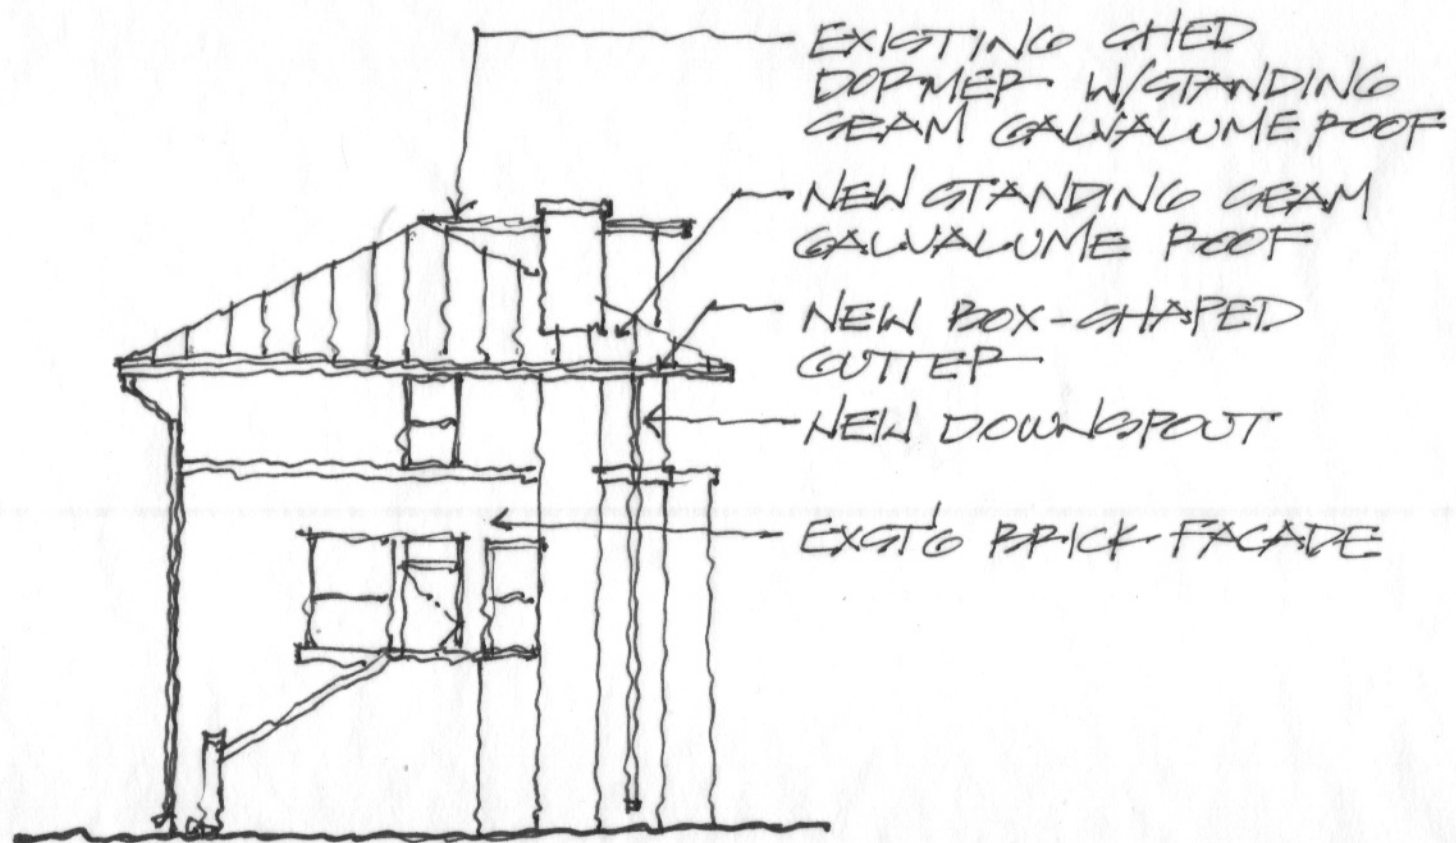 EXISTING SHED
DORMER W/STANDING
SEAM GALVALUME ROOF
NEW STANDING SEAM
GALVALUME ROOF
NEW BOX-SHAPED
GUTTER
NEW DOWNSPOUT
EXST'G BRICK FACADE